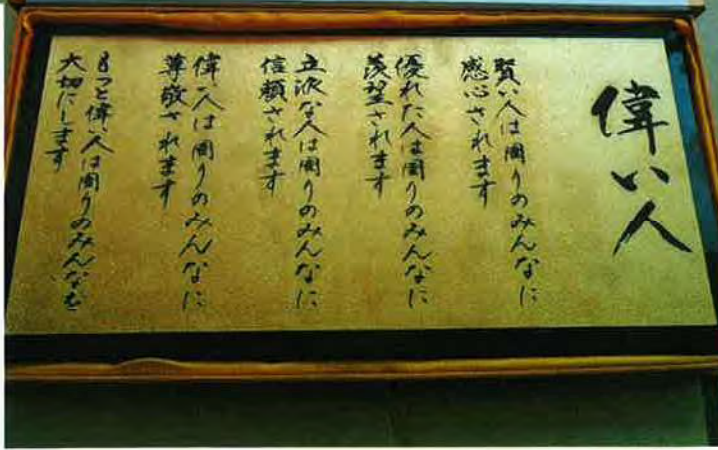 偉い人
賢い人は周りのみんなに
感心されます
優れた人は周りのみんなに
羨望されます
立派な人は周りのみんなに
信頼されます
偉い人は周りのみんなに
尊敬されます
もっと偉い人は周りのみんなを
大切にします